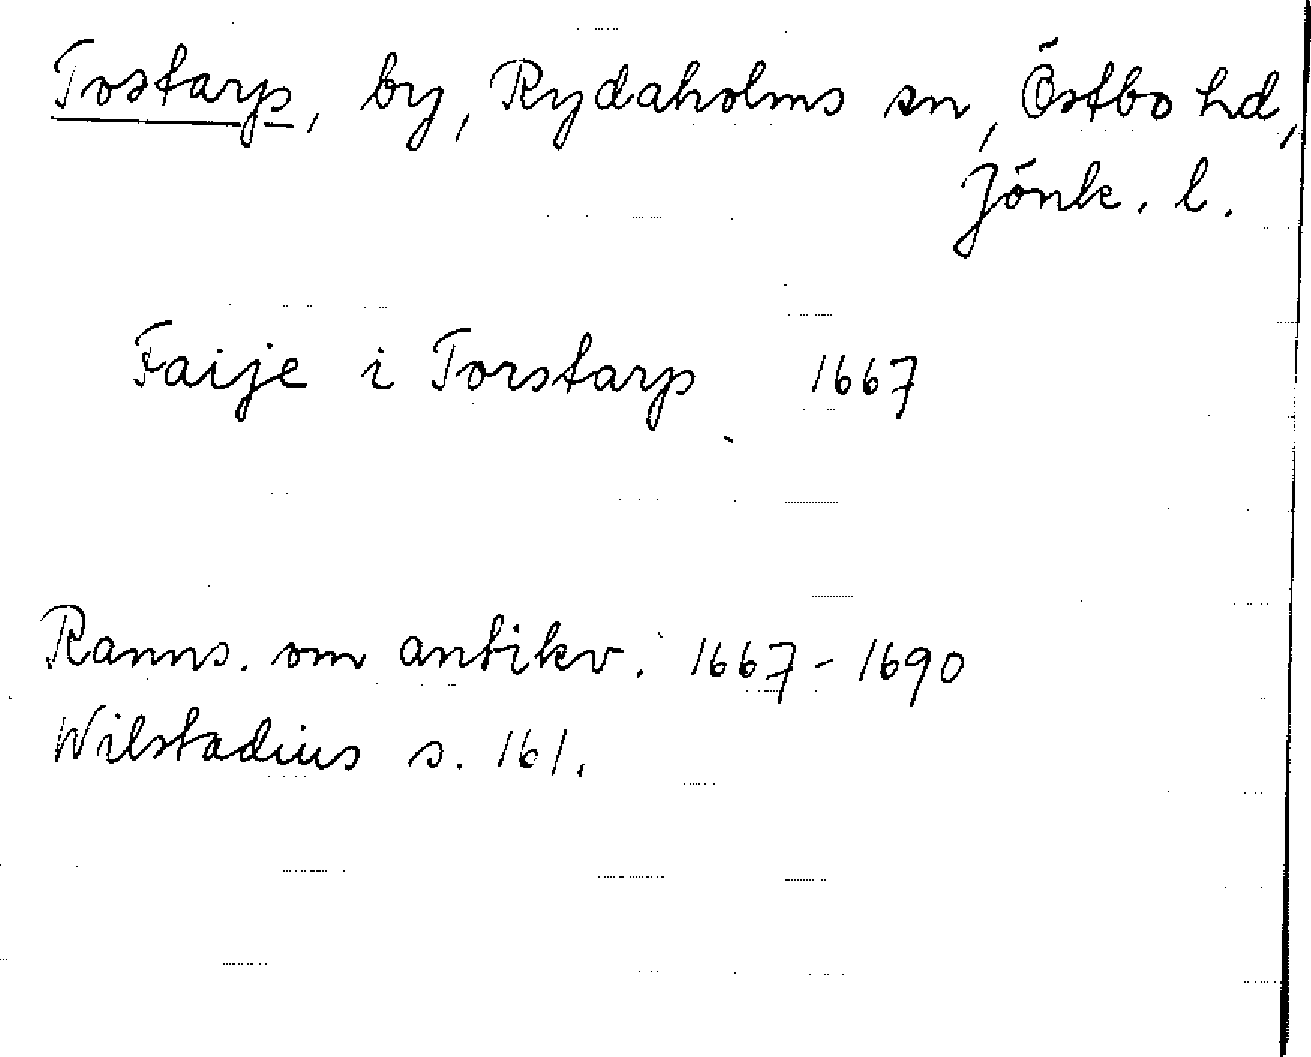 Tostarp, by, Rydaholms sn, Östbo hd,
Jönk. l.
Faije i Torstarp 1667
Ranns. om antikv. 1667-1690
Wilstadius s. 161.